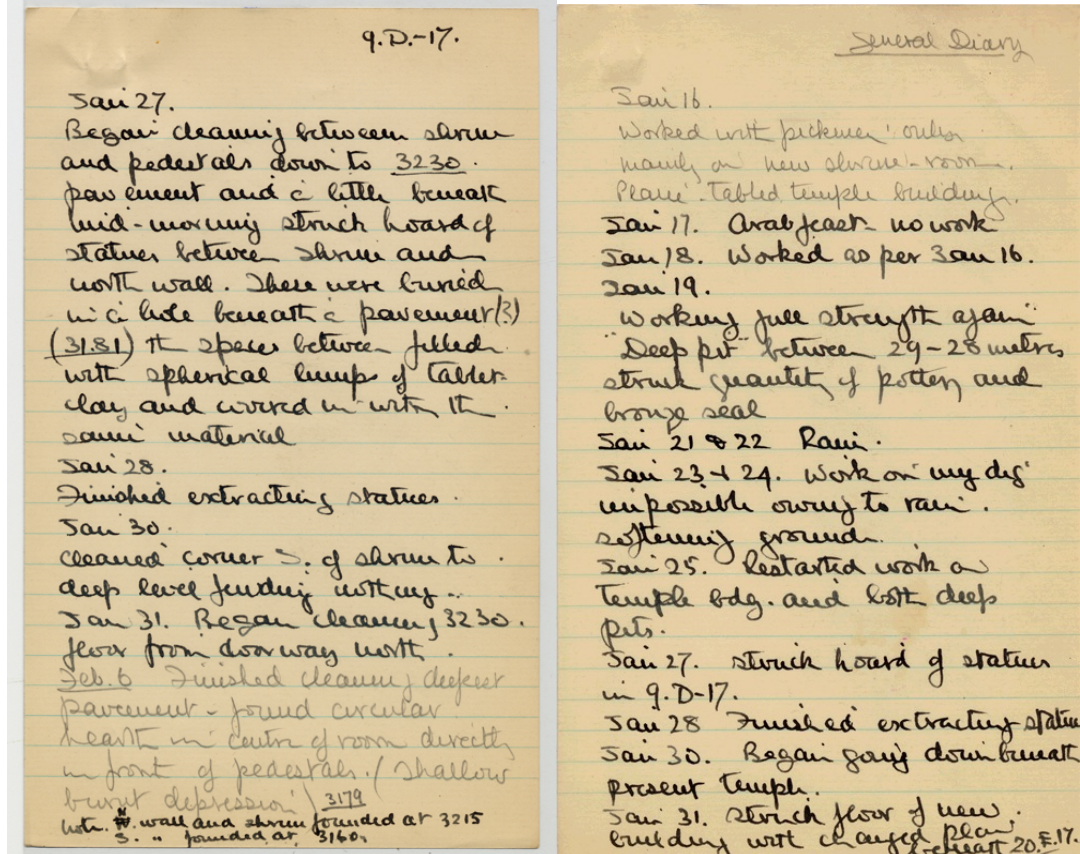 9.D.-17.
Jan 27.
Began cleaning between shrine
and pedestals down to 3230.
pavement and a little beneath
mid-morning struck hoard of
statues between shrine and
north wall. These were buried
in a hole beneath a pavement (?)
(31.81) the spaces between filled
with spherical lumps of tablet
clay and covered in with the
same material
Jan 28.
Finished extracting statues.
Jan 30.
cleaned corner S. of shrine to
deep level finding nothing.
Jan 31. Began cleaning 3230.
floor from doorway north.
Feb. 6 Finished cleaning deepest
pavement - found circular
hearth in centre of room directly
in front of pedestals. (Shallow
burnt depression) 3179
note. N. wall and shrine founded at 3215
S. " founded at 3160.
General Diary
Jan 16.
Worked with pickmen only
mainly on new shrine-room.
Plane-Tabled temple building.
Jan 17. Arab feast - no work
Jan 18. Worked as per Jan 16.
Jan 19.
Working full strength again
"Deep pit" between 29-28 metres
struck quantity of pottery and
bronze seal
Jan 21 & 22 Rain.
Jan 23 + 24. Work on my dig
impossible owing to rain.
softening ground.
Jan 25. Restarted work on
temple bdg. and both deep
pits.
Jan 27. struck hoard of statues
in 9.D-17.
Jan 28 Finished extracting statue
Jan 30. Began going down beneath
present temple.
Jan 31. Struck floor of new
building with changed plan
beneath 20.E.17.